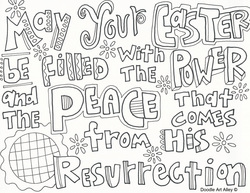 May Your Easter
Be Filled with the Power
and the Peace that comes
from His
Resurrection
Doodle Art Alley ©